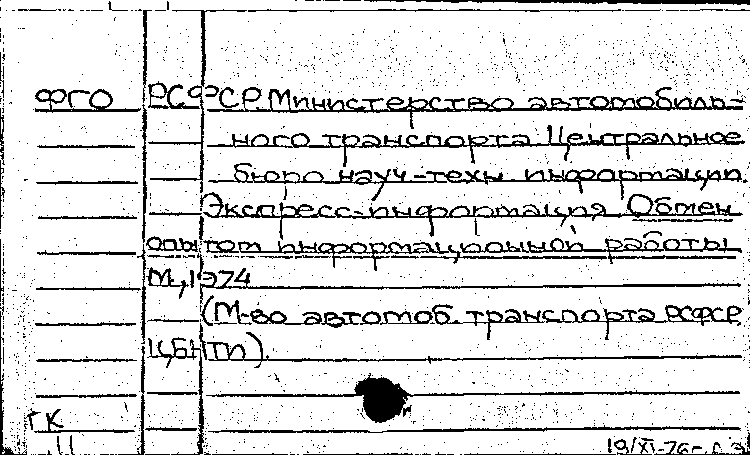 ФГО РСФСР. Министерство автомобиль-
ного транспорта Центральное
бюро науч-техн информации.
Экспресс-информация Обмен
опытом информационной работы
М., 1974
(М-во автомоб. транспорта РСФСР
ЦБНТИ).
ГК